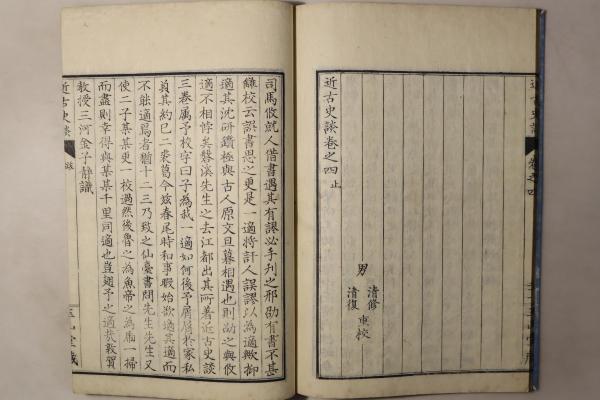 近古史談 卷之四
近古史談卷之四 止
男 清修
清復 重校
司馬攸就人借書遇其有謬必手刊之邢劭有書不甚
讎校云誤書思之更是一適將計人誤謬以為適歟抑
適其沈研鑽極與古人原文旦暮相遇也則劭之與攸
適不相悖矣磐溪先生之去江都出其所著近古史談
三卷属予校字曰子為我一適如何後予属属於家私
負其約已二裘葛今玆春尾時和事暇始欲適其適而
不能適焉者猶十二三乃致之仙臺書問先生先生又
使二子某某更一校過然後魯之為魚帝之為乕一掃
而盡則幸得與某某千里同適也豈翅予之適哉教賀
教授三河金子静識
近古史談 跋
玉山堂蔵